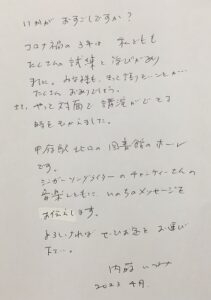 いかが おすごしですか?
コロナ禍の3年は 私ども
たくさんの試練と学びがあり
ました。みなさまも、きっと
たくさん おありでしょう。
やっと対面で 講演ができる
時をむかえました。
甲府駅北口の図書館のホール
です。
シンガーソングライターの チャーティーさんの
音楽とともに、いのちのメッセージを
お伝えします。
よろしければ ぜひお足をお運び
下さい。
内藤 いづみ
2023 4月